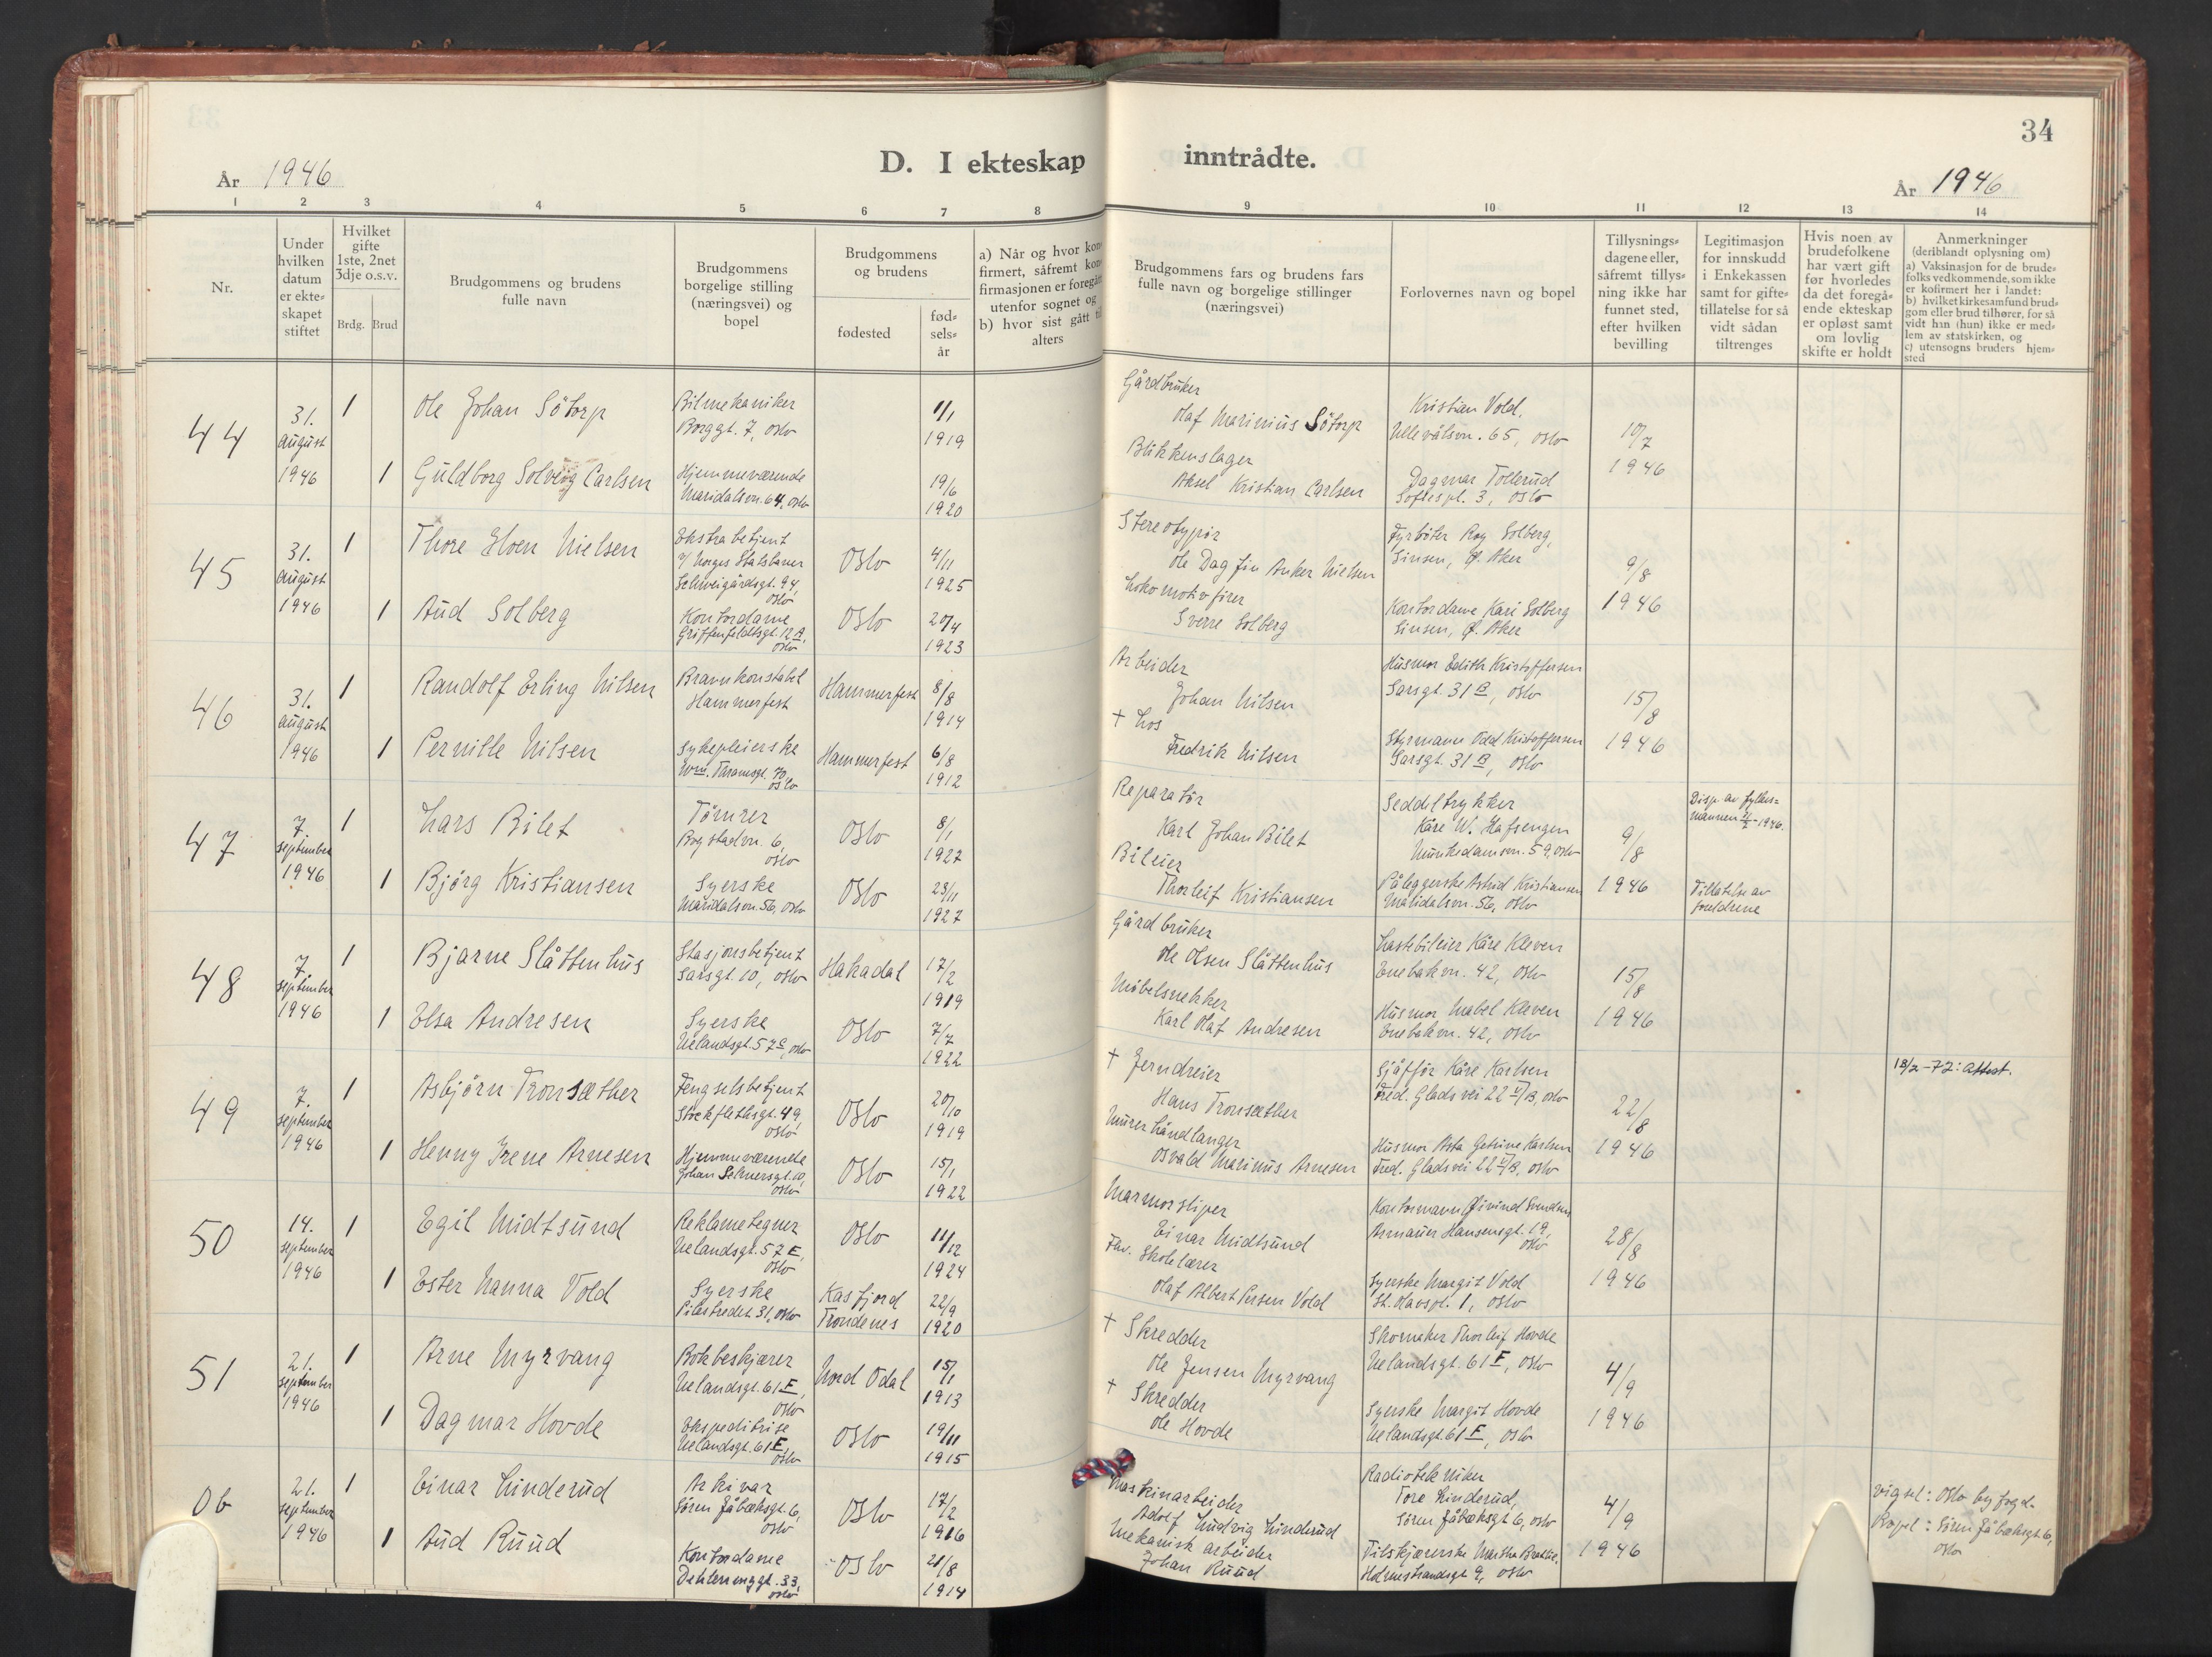 34
D. I ekteskap inntrådte.
År 1946
År 1946
1 2 3 4 5 6 7 8 9 10 11 12 13 14
Nr.
Under hvilken datum er ekte= skapet stiftet
Hvilket gifte 1ste, 2net 3dje o.s.v.
Brdg. Brud
Brudgommens og brudens fulle navn
Brudgommens borgelige stilling (næringsvei) og bopel
Brudgommens og brudens
fødested
fød= sels= år
a) Når og hvor kon= firmert, såfremt kon= firmasjonen er foregått utenfor sognet og b) hvor sist gått til alters
Brudgommens fars og brudens fars fulle navn og borgelige stillinger (næringsvei)
Forlovernes navn og bopel
Tillysnings= dagene eller, såfremt tillys= ning ikke har funnet sted, efter hvilken bevilling
Legitimasjon for innskudd i Enkekassen samt for gifte= tillatelse for så vidt sådan tiltrenges
Hvis noen av brudefolkene har vært gift før hvorledes da det foregå= ende ekteskap er opløst samt om lovlig skifte er holdt
Anmerkninger (deriblandt oplysning om) a) Vaksinasjon for de brude= folks vedkommende, som ikke er kofirmert her i landet: b) hvilket kirkesamfund brud= gom eller brud tilhører, for så vidt han (hun) ikke er med= lem av statskirken, og c) utensogns bruders hjem= sted
44
31. august 1946
1 Ole Johan Sötorp
Bilmekaniker Borggt. 7, Oslo
1/1 1919
Gårdbruker Olaf Marinius Sötorp
Kristian Vold, Ullevålsvn. 65, Oslo
10/7 1946
1 Guldborg Solveig Carlsen
Hjemmeværende Maridalsvn. 64, Oslo
19/6 1920
Blikkenslager Aksel Kristian Carlsen
Dagmar Tollerud Softiespl. 3, Oslo
45
31. august 1946
1 Thore Hoen Nielsen
Ekstrabetjent v/ Norges Statsbaner Schweigårdsgt. 94, Oslo
Oslo 4/11 1925
Stereotypör Ole Dagfin Anker Nielsen
Fyrböter Roy Solberg, Sinsen, Ø. Aker
9/8 1946
1 Aud Solberg
Kontordame Griffenfeldtsgt. 12 B, Oslo
Oslo 20/4 1923
Lokomotivförer Sverre Solberg
Kontordame Kari Solberg Sinsen, Ø. Aker
46
31. august 1946
1 Randolf Erling Nilsen
Brannkonstabel Hammerfest
Hammerfest 8/8 1914
Arbeider Johan Nilsen
Husmor Edith Kristoffersen Sarsgt. 31 B, Oslo
15/8 1946
1 Pernille Nilsen
Sykepleierske Wm. Thranesgt. 70, Oslo
Hammerfest 6/8 1912
† Los Fredrik Nilsen
Styrmann Odd Kristoffersen Sarsgt. 31 B, Oslo
47
7. september 1946
1 Lars Bilet
Tömrer Bogstadvn. 6, Oslo
Oslo 8/1 1927
Reparatör Karl Johan Bilet
Seddeltrykker Kåre W. Hafsengen Munkedamsvn. 59, Oslo
9/8 1946
Disp. av fylkes= mannen 1946.
1 Björg Kristiansen
Syerske Maridalsvn. 56, Oslo
Oslo 23/11 1927
Bileier Thorleif Kristiansen
Påleggerske Astrid Kristiansen Maridalsvn. 56, Oslo
Tillatelse av foreldrene
48
7. september 1946
1 Bjarne Slåttenhus
Stasjonsbetjent Sarsgt. 10, Oslo
Hakadal 17/2 1919
Gårdbruker Ole Olsen Slåttenhus
Lastebileier Kåre Kleven Enebakvn. 42, Oslo
15/8 1946
1 Elsa Andresen
Syerske Uelandsgt. 57 C, Oslo
Oslo 7/7 1922
Möbelsnekker Karl Olaf Andresen
Husmor Mabel Kleven Enebakvn. 42, Oslo
49
7. september 1946
1 Asbjörn Tronsæther
Fengselsbetjent Stockflethsgt. 49, Oslo
Oslo 20/10 1919
† Jerndreier Hans Tronsæther
Sjåfför Kåre Karlsen Fred. Glads vei 22 II/B, Oslo
22/8 1946
18/2-72: Attest.
1 Henny Irene Arnesen
Hjemmeværende Johan Selmersgt. 10, Oslo
Oslo 15/1 1922
Murerhåndlanger Osvald Marinus Arnesen
Husmor Asta Getrine Karlsen Fred. Glads vei 22 II/B, Oslo
50
14. september 1946
1 Egil Midtsund
Reklametegner Uelandsgt. 57 E, Oslo
Oslo 11/12 1924
Marmorsliper Einar Midtsund
Kontormann Øivind Svendsen Armauer Hansensgt. 19, Oslo
28/8 1946
1 Ester Nanna Vold
Syerske Pilestredet 31, Oslo
Kasfjord Trondenes 22/9 1920
Fhv. Skolelærer Olaf Albert Persen Vold
Syerske Margit Vold St. Olavspl. 1, Oslo
51
21. september 1946
1 Arne Myrvang
Bokbeskjærer Uelandsgt. 61 F, Oslo
Nord Odal 15/1 1913
† Skredder Ole Jensen Myrvang
Skomaker Thorleif Hovde Uelandsgt. 61 F, Oslo
4/9 1946
1 Dagmar Hovde
Ekspeditrise Uelandsgt. 61 F, Oslo
Oslo 19/11 1915
† Skredder Ole Hovde
Syerske Margit Hovde Uelandsgt. 61 F, Oslo
Ob
21. september 1946
1 Einar Linderud
Arkivar Sören Jåbæksgt. 6, Oslo
Oslo 17/2 1916
Maskinarbeider Adolf Ludvig Linderud
Radiotekniker Tore Linderud, Sören Jåbæksgt 6, Oslo
4/9 1946
Vigsel: Oslo byfogd. Bopel: Sören Jåbæksgt. 6, Oslo
1 Aud Ruud
Kontordame Dehlenenggt. 33, Oslo
Oslo 21/8 1914
Mekanisk arbeider Johan Ruud
Tilskjærerske Martha Holmestrandsgt 9, Oslo